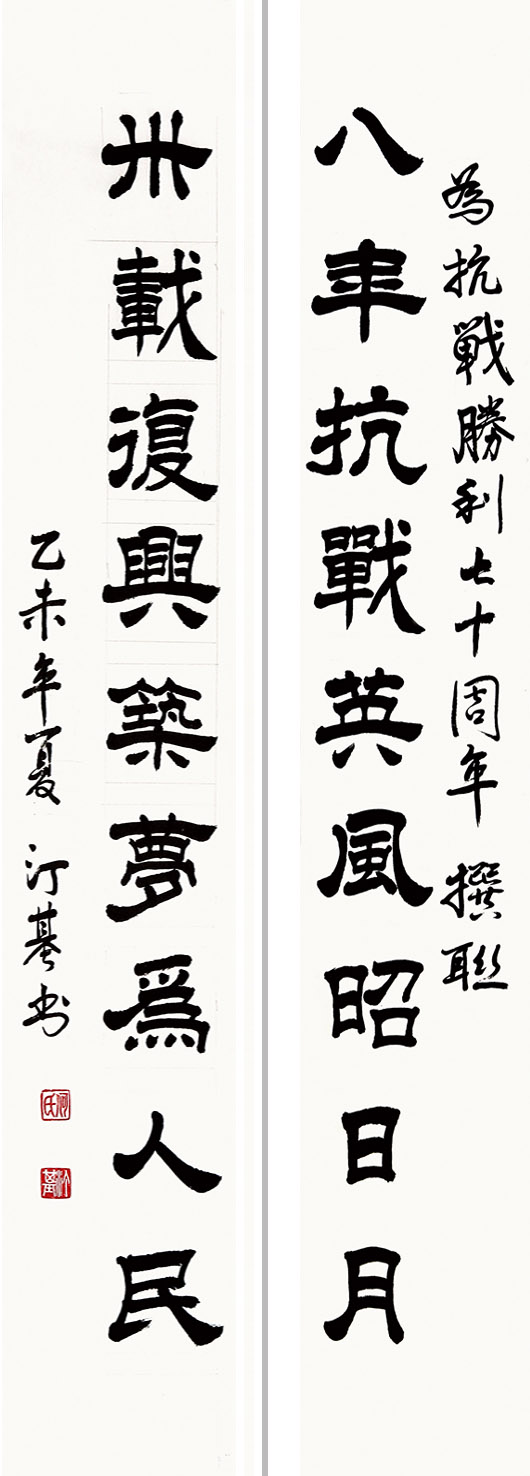 為抗戰勝利七十周年 撰聯
八年抗戰英風昭日月
卅載復興築夢爲人民
乙未年夏 汀书
何氏